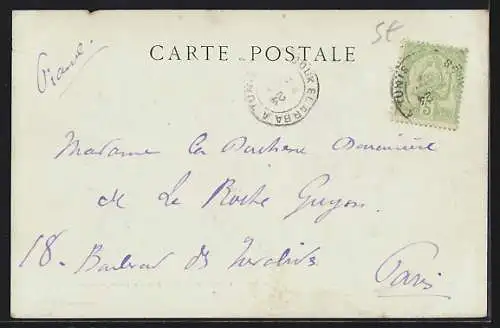 5t
France.
CARTE POSTALE
SOUK EL ARBA A TUNIS
A TUNIS
5
Madame La Duchesse Douairière
de La Roche Guyon
18 - Boulevard des Invalides
Paris